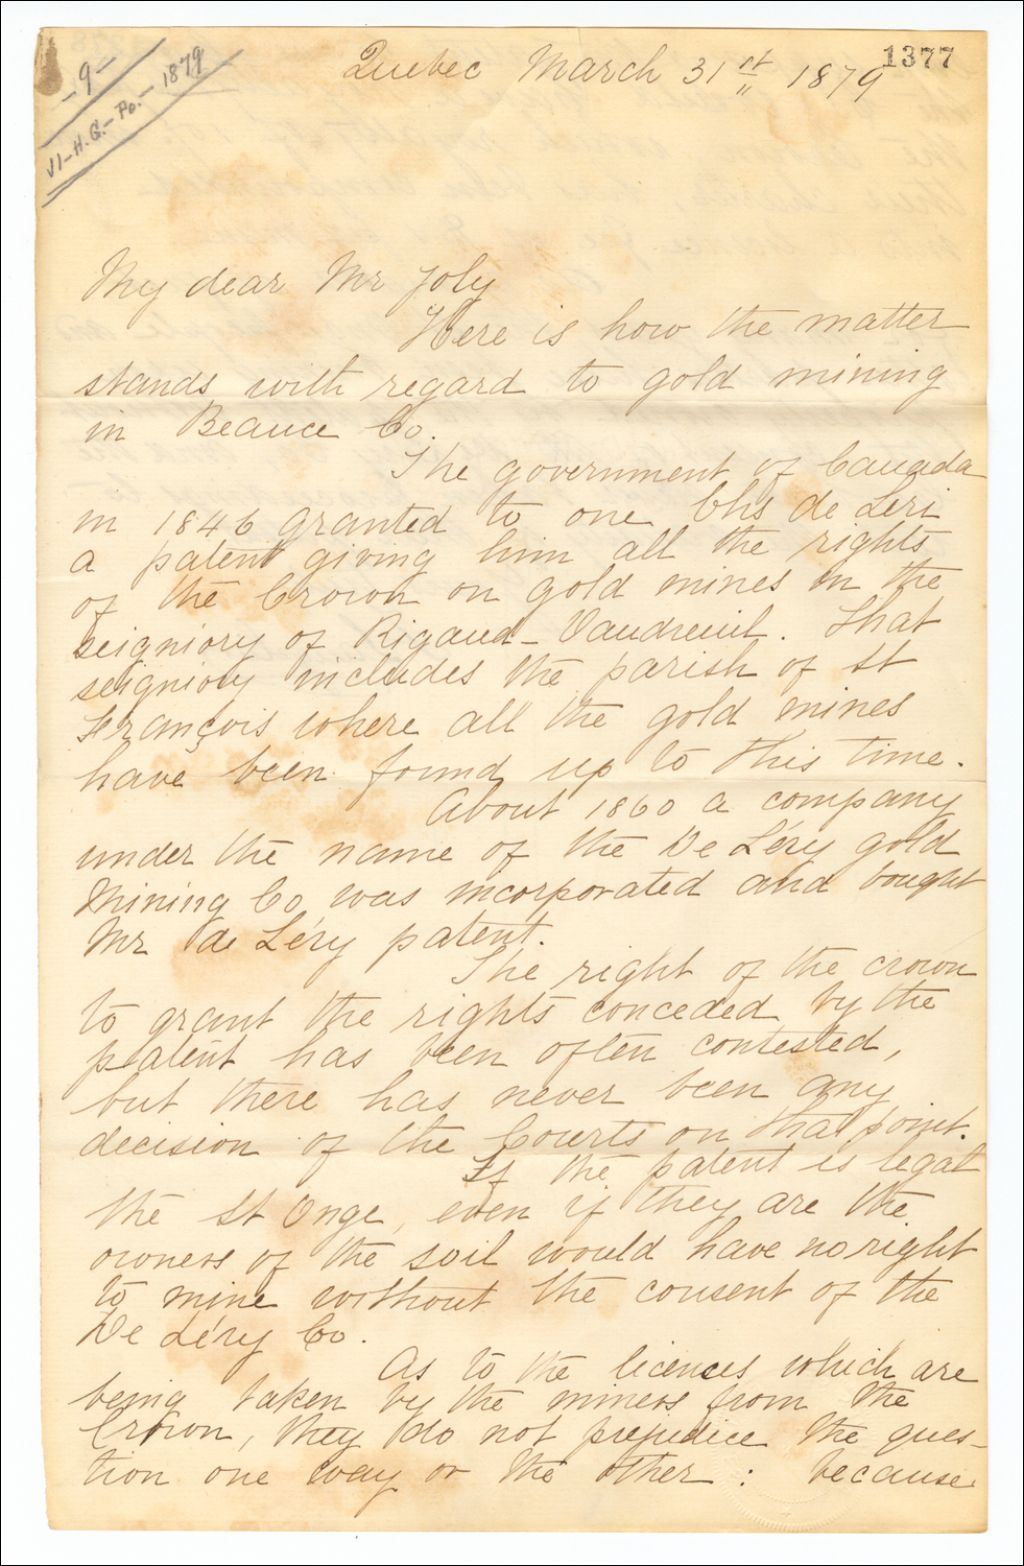 1377
- 9 -
VI-H.G.-Po.-1879
Quebec March 31st 1879
My dear Mr Joly
Here is how the matter
stands with regard to gold mining
in Beauce Co.
The government of Canada
in 1846 granted to one Chs de Leri
a patent giving him all the rights
of the Crown on gold mines in the
seigniory of Rigaud-Vaudreuil. That
seigniory includes the parish of St
François where all the gold mines
have been found up to this time.
About 1860 a company
under the name of the De Léry gold
Mining Co was incorporated and bought
Mr de Léry patent.
The right of the crown
to grant the rights conceded by the
patent has been often contested,
but there has never been any
decision of the Courts on that point.
If the patent is legal
the St Onge, even if they are the
owners of the soil would have no right
to mine without the consent of the
De Léry Co.
As to the licences which are
being taken by the miners from the
Crown, they do not prejudice the ques-
tion one way or the other : because